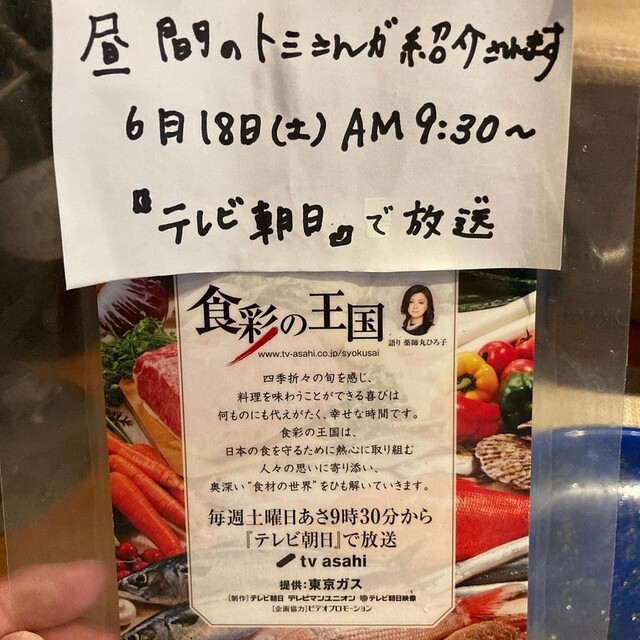 昼間のトミさんが紹介されます
6月18日(土)AM9:30~
『テレビ朝日』で放送
食彩の王国
語り 薬師丸ひろ子
www.tv-asahi.co.jp/syokusai
四季折々の旬を感じ、
料理を味わうことができる喜びは
何ものにも代えがたく、幸せな時間です。
食彩の王国は、
日本の食を守るために熱心に取り組む
人々の思いに寄り添い、
奥深い"食材の世界"をひも解いていきます。
毎週土曜日あさ9時30分から
『テレビ朝日』で放送
tv asahi
提供:東京ガス
[制作]テレビ朝日 テレビマンユニオン テレビ朝日映像
[企画協力]ビデオプロモーション